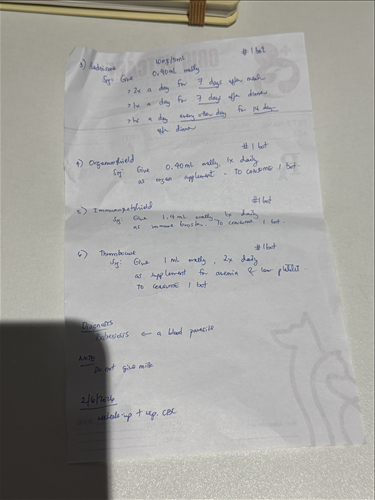 3) 10mg/5ml #1 bot
Sig: Give 0.90ml orally
> 2x a day for 7 days after meals
> 1x a day for 7 days after dinner
> 1x a day every other day for 14 days
after dinner
4) #1 bot
Sig: Give 0.90ml orally, 1x daily
as organ supplement. To consume 1 bot.
5) Immunopetshield #1 bot
Sig: Give orally, 1x daily
as immune booster. To consume 1 bot.
6) Thrombocure #1 bot
Sig: Give 1 mL orally, 2x daily
as supplement for anemia & low platelet
To consume 1 bot
Diagnosis
a blood parasite
NOTE
Do not give milk
check-up + rep. CBC